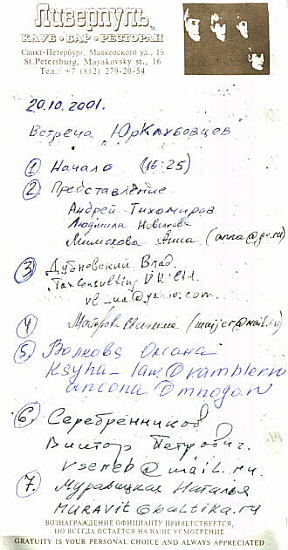 Ливерпуль
КЛУБ • БАР • РЕСТОРАН
Санкт-Петербург, Маяковского ул., 16
St.Petersburg, Mayakovsky st., 16
Тел.: +7 (812) 279-20-54
20.10.2001.
Встреча ЮрКлубовцев
① Начало (16:25)
② Представление
Андрей Тихомиров
Людмила Новикова
Анна (anna@
③ Дубновский Влад.
Tax Consulting U.K. Ltd.
④
⑤ Волкова Оксана
Ksyha_law@rambler.ru
ancona@mnogo.ru
⑥ Серебренников
Виктор Петрович.
vsereb@mail.ru.
⑦ Муравицкая Наталья
muravit@baltika.ru
ВОЗНАГРАЖДЕНИЕ ОФИЦИАНТУ ПРИВЕТСТВУЕТСЯ,
НО ВСЕГДА ОСТАЕТСЯ НА ВАШЕ УСМОТРЕНИЕ
GRATUITY IS YOUR PERSONAL CHOICE AND ALWAYS APPRECIATED